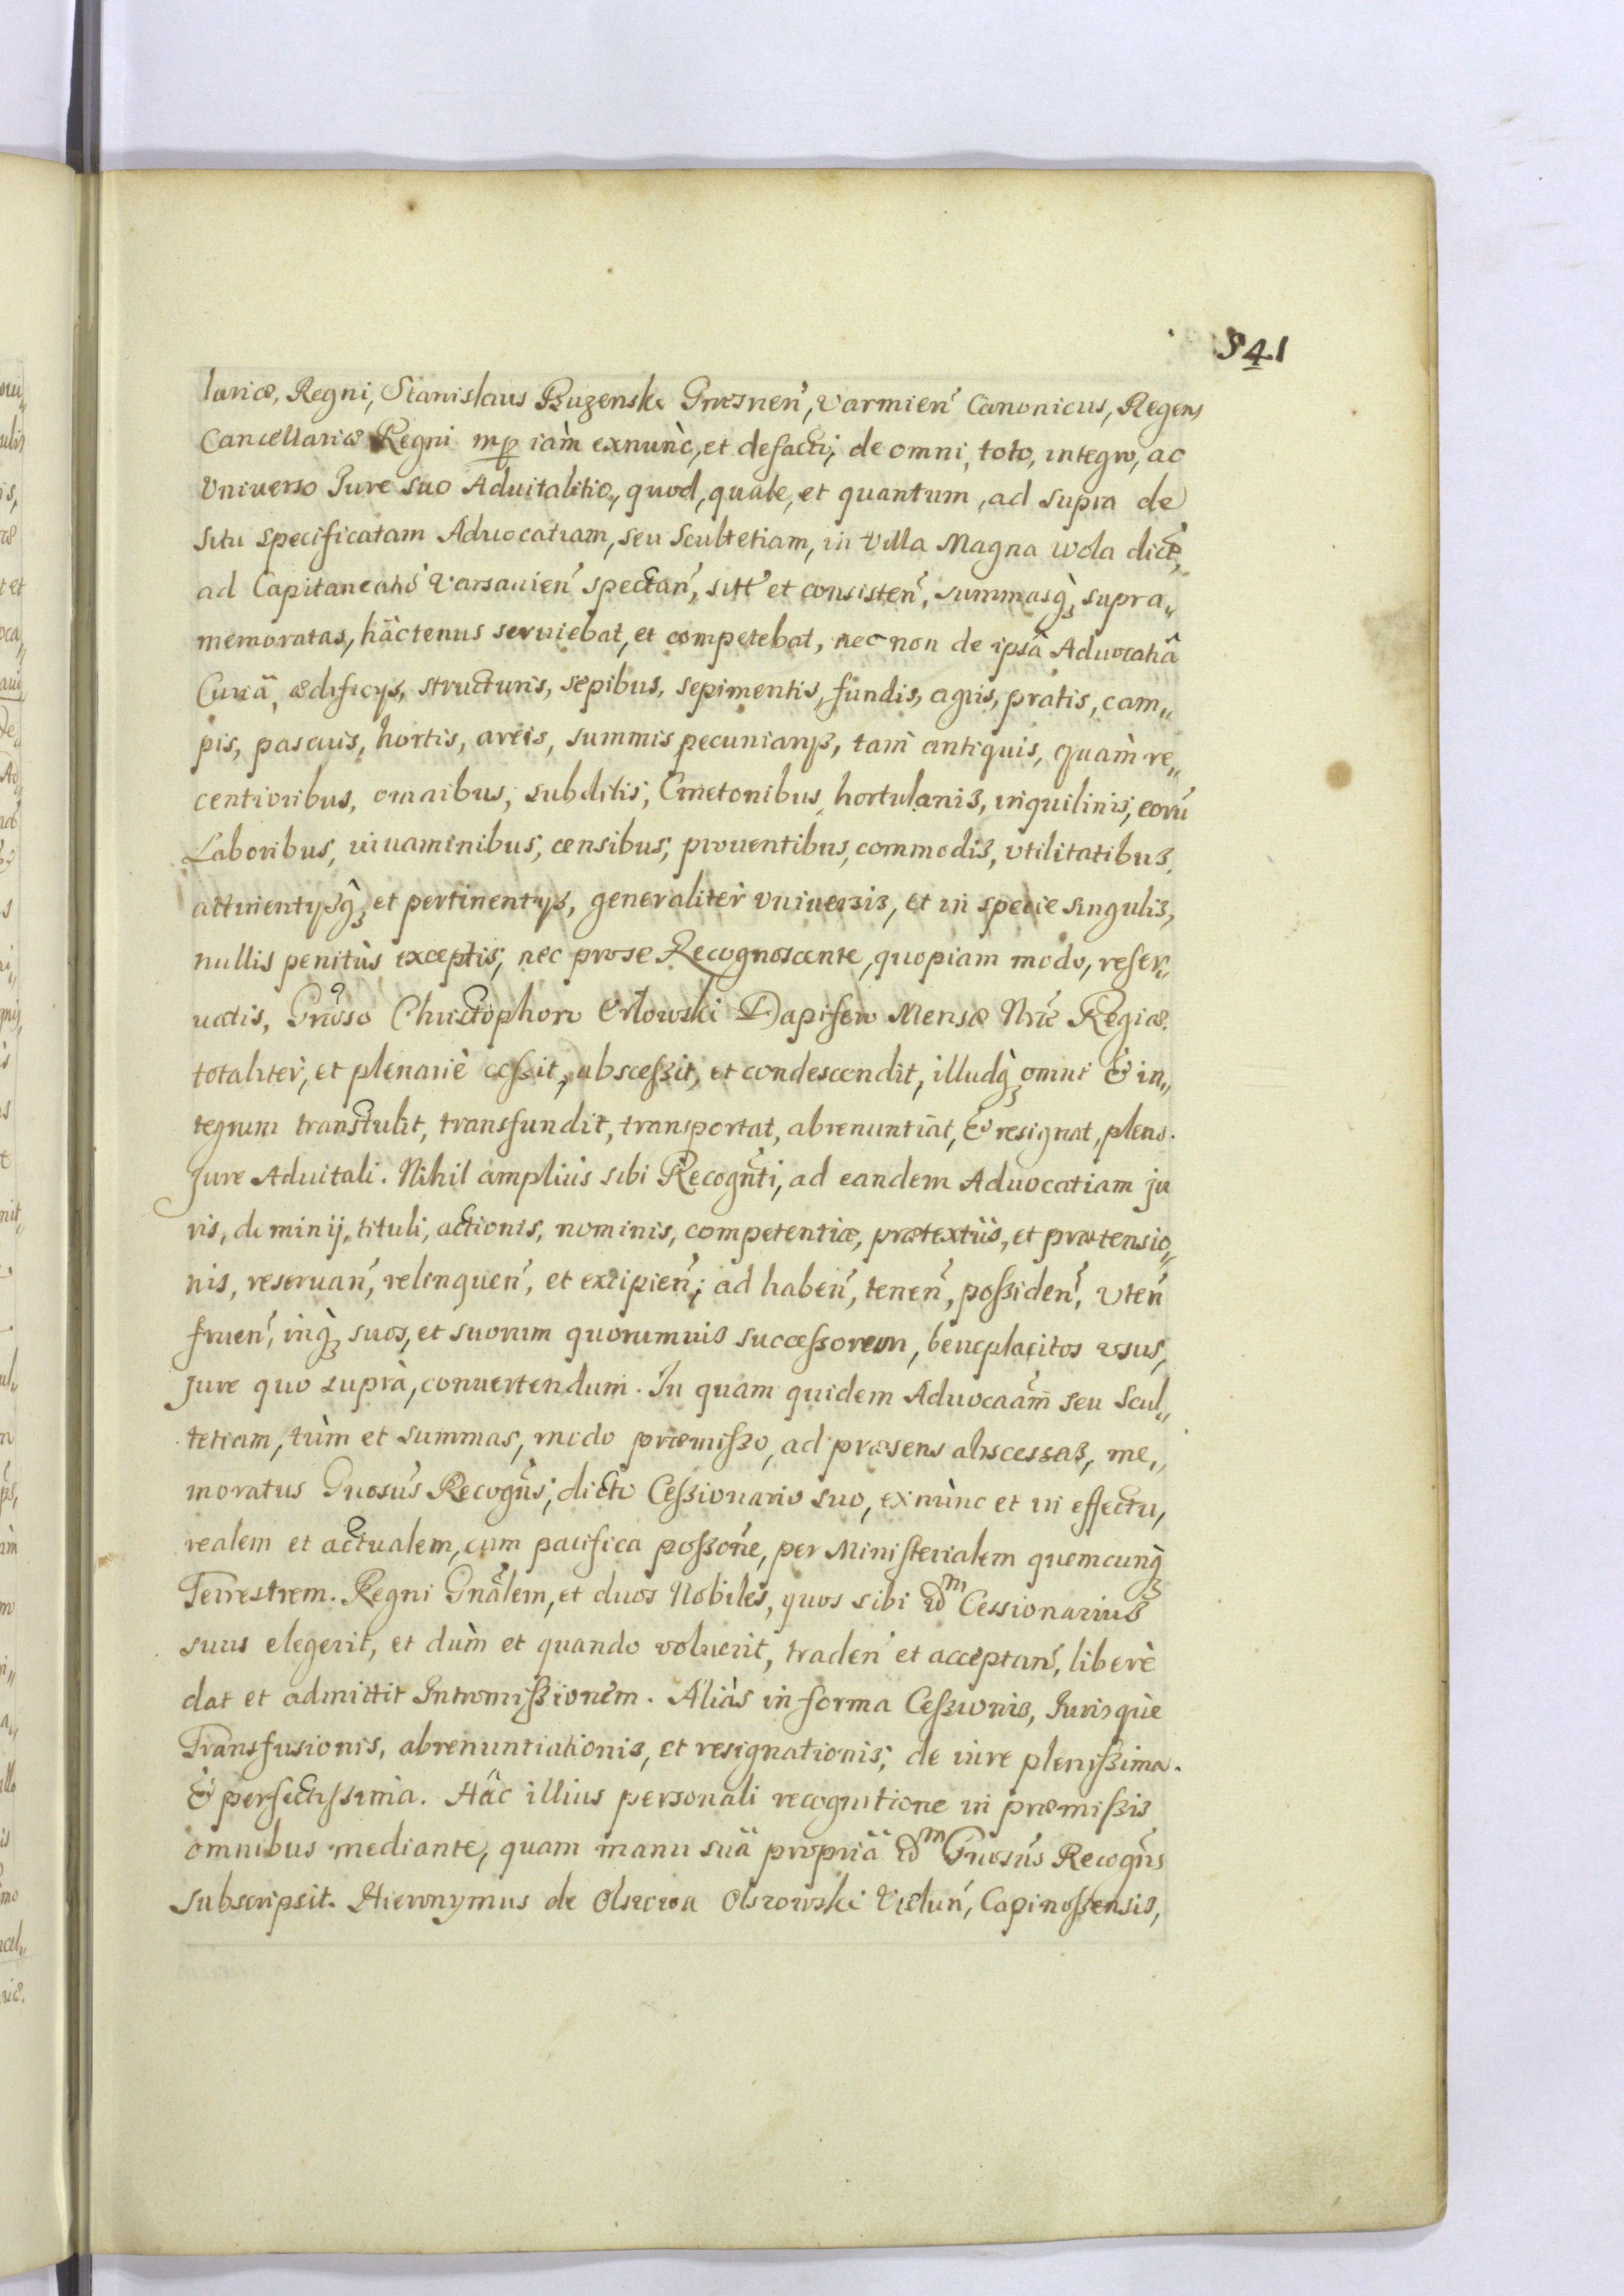 541
lariæ, Regni, Stanislaus Buzenski Gnesnen̄, Varmien̄ Canonicus, Regens
Cancellariæ Regni mp iàm exnùnc, et defacti, de omni, toto, integro, ac
Vniuerso Jure suo Aduitalitio, quod, quale, et quantum, ad supra de
situ specificatam Aduocatiam, seu Scultetiam, in Villa Magna Wola dict,
ad Capitaneatū Varsauien̄ spectan̄, sitt et consisten̄, summasq̨, supra„
memoratas, hàctenus seruiebat, et competebat, nec non de ipsâ Aduocatiâ
Curiâ, ædificijs, structuris, sepibus, sepimentis, fundis, agris, pratis, cam„
pis, pascuis, hortis, areis, summis pecuniarijs, tam̀ antiquis, quàm re„
centioribus, omnibus, subditis, Cmetonibus, hortulanis, inquilinis, eorū
Laboribus, viuaminibus, censibus, prouentibus, commodis, vtilitatibus,
attinentijsq̨, et pertinentijs, generalitèr vniuersis, et in specie singulis,
nullis penitùs exceptis, nec pro se Recognoscente, quopiam modo, reser„
uatis, Gnoso Christophoro Orłowski Dapifero Mensæ Nræ Regiæ.
totalitèr, et plenariè cessit, abscessit, et condescendit, illudq̨ omne & in„
tegrum transtulit, transfundit, transportat, abrenuntiat, & resignat, pleno.
Jure Aduitali. Nihil ampliùs sibi Recognti, ad eandem Aduocatiam ju
ris, dominij, tituli, actionis, nominis, competentiæ, prætextûs, et prætensio„
nis, reseruan̄, relinquen̄, et excipien̄; ad haben̄, tenen̄, possiden̄, vten̄
fruen̄, inq̨ suos, et suorum quorumuis successorum, beneplacitos vsus,
Jure quo suprà, conuertendum. In quam quidem Aduocaam̄ seu Scul„
tetiam, tùm et summas, modo præmisso, ad præsens abscessas, me„
moratus Gnosus Recogn̄s, dicto Cessionario suo, exnùnc et in effectu,
realem et actualem, cum pacifica possone, per Ministerialem quemcunq̨
Terrestrem. Regni Gnalem, et duos Nobiles, quos sibi idm Cessionarius
suus elegerit, et dùm et quando voluerit, traden̄ et acceptan̄, liberè
dat et admittit Intromissionem. Aliàs in forma Cessionis, Jurisque
Transfusionis, abrenuntiationis, et resignationis, de iure plenissima.
& perfectissima. Hâc illius personali recognitione in præmissis
omnibus mediante, quam manu suâ propriâ idm Gnosus Recogn̄s
subscripsit. Hieronymus de Olszowa Olszowski Vielun̄, Capinossensis,